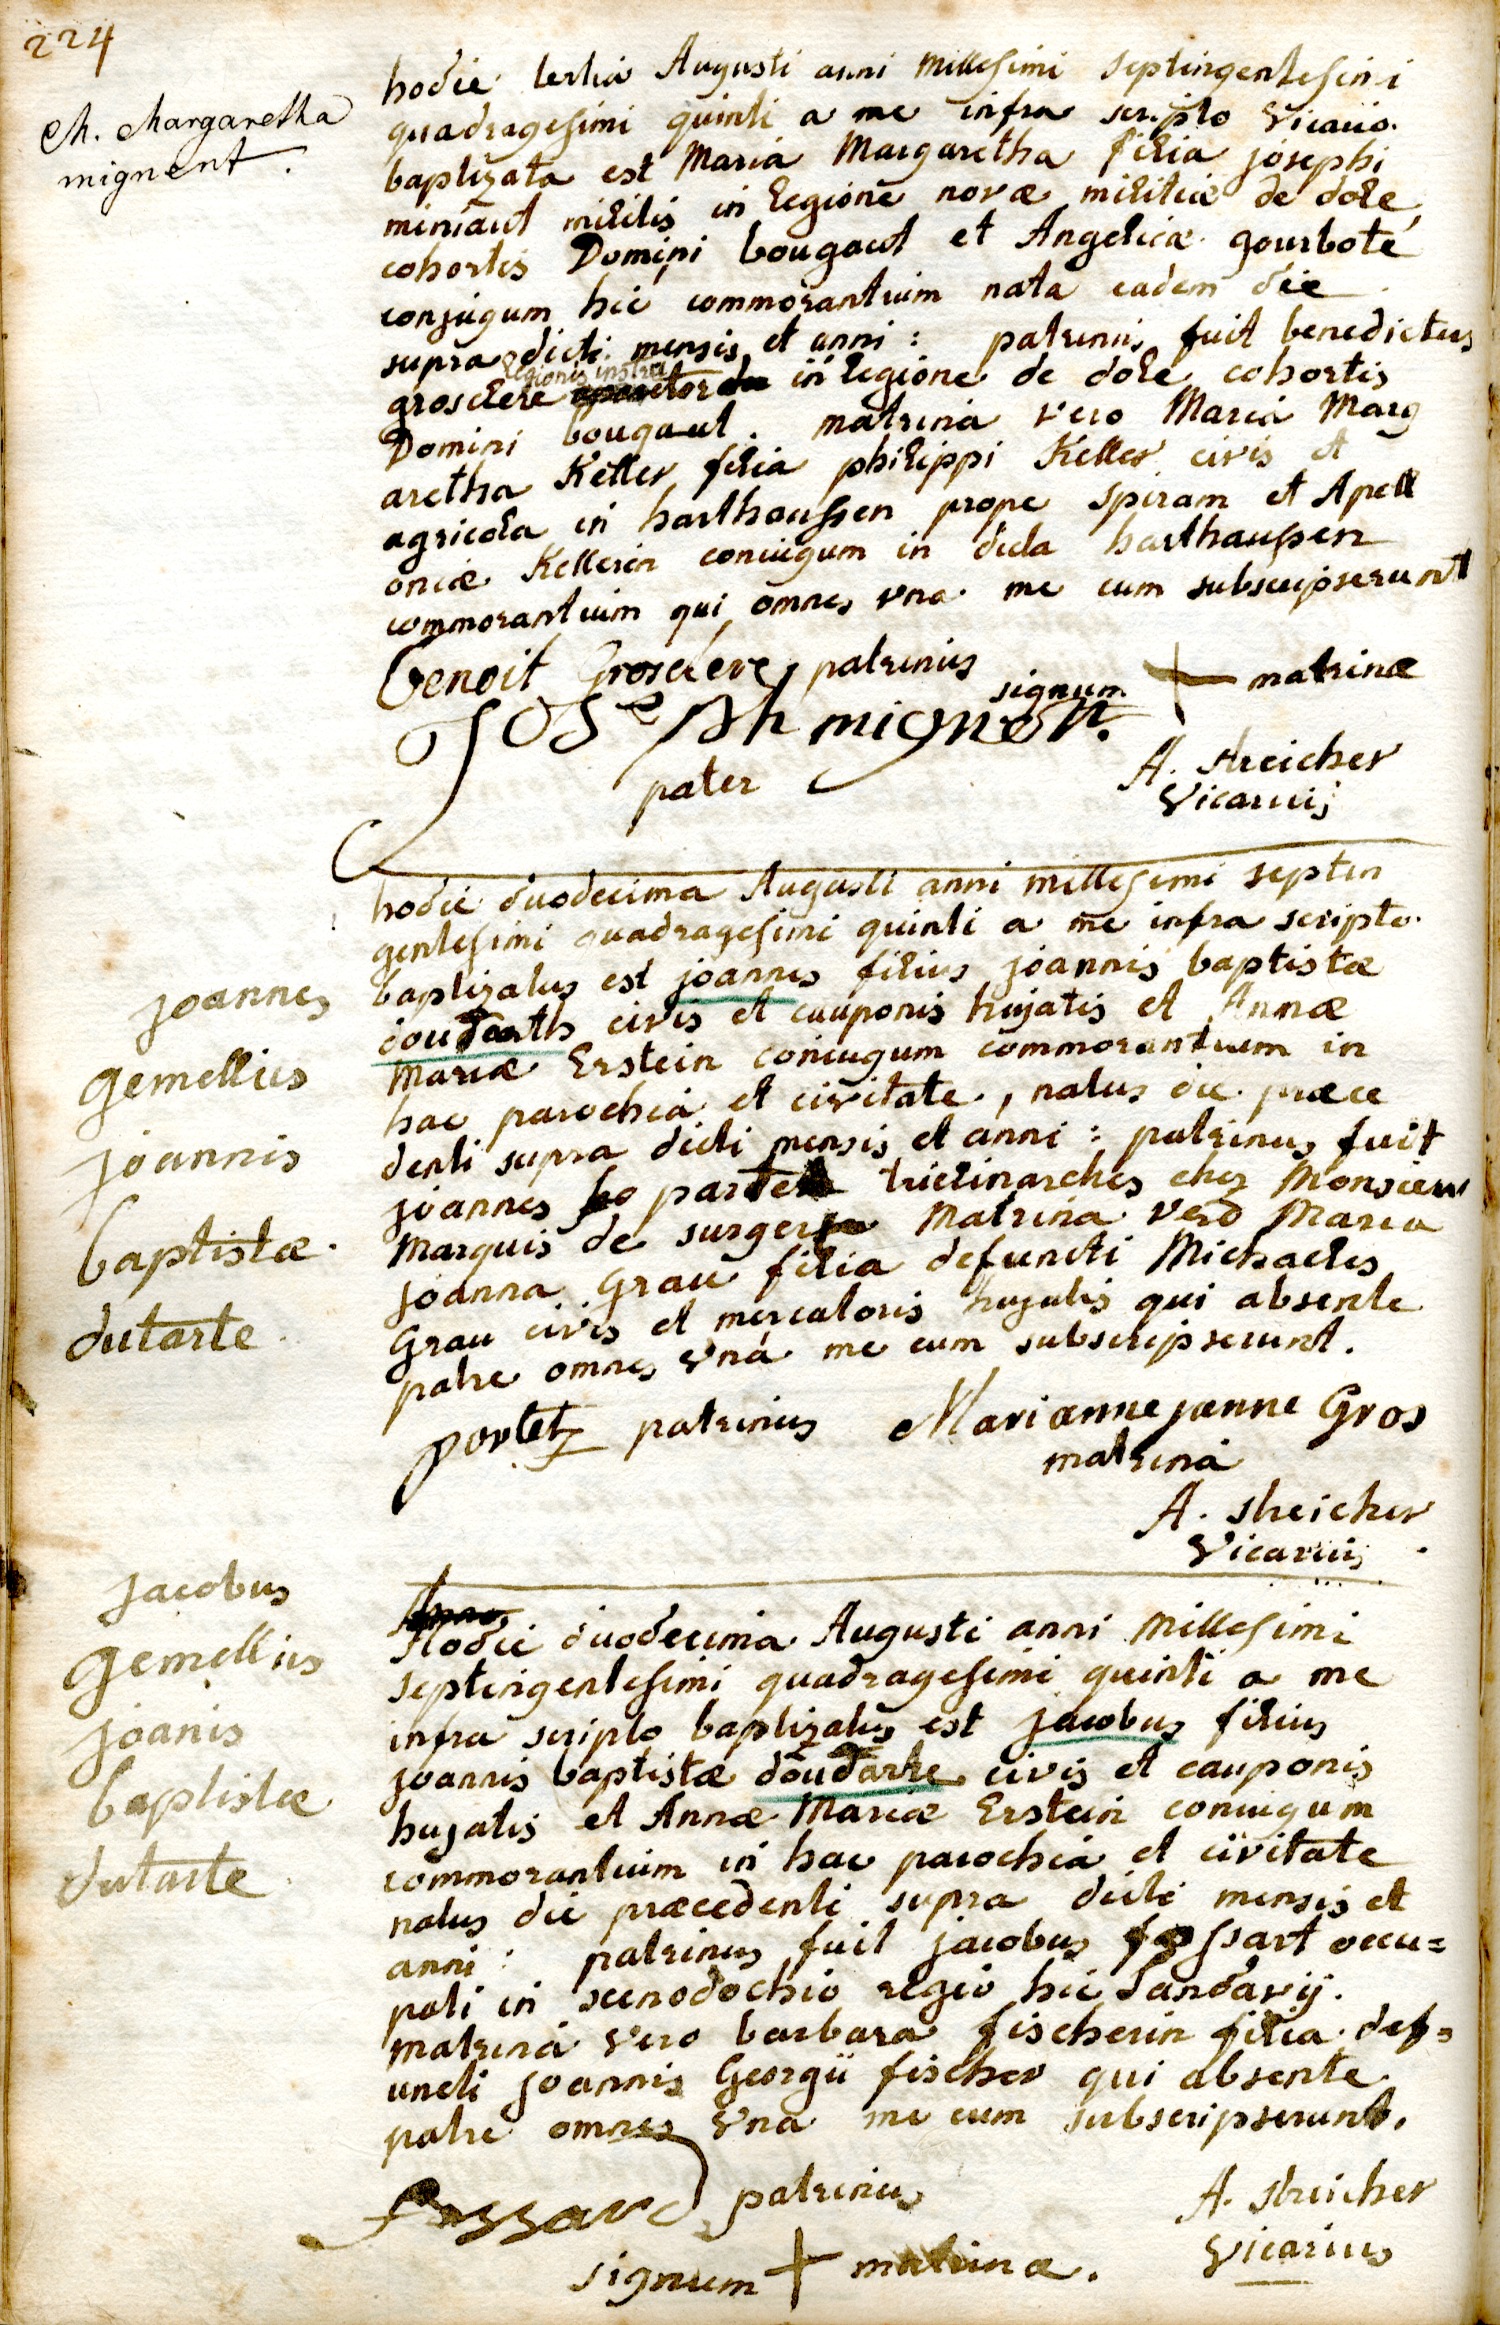 224
M. Margaretha
mignent.
hodie tertia Augusti anni Millesimi septingentesimi
quadragesimi quinti a me infra scripto Vicario.
baptizata est Maria Margaretha filia josephi
miniaut militis in legione novæ militiæ de dole,
cohortis Domini bougaut et Angelicæ gourboté
conjugum hic commorantium nata eadem die
supra dicti mensis et anni : patrinus fuit benedictus
legionis
grosclere in legione de dole cohortis
Domini bougaut. matrina vero Maria Marg
aretha Keller filia philippi Keller civis et
agricola in harthaussen prope spiram et Apoll
oniæ Kellerin coniugum in dicta harthaussen
commorantium qui omnes vna me cum subscripserunt
benoit Grosclere patrinus
signum + matrinæ
joseph mignot.
pater
A. streicher
Vicarius
hodie duodecima Augusti anni millesimi septin
gentesimi quadragesimi quinti a me infra scripto.
baptizatus est joannes filius joannis baptistæ
civis et cauponis hujatis et Annæ
Mariæ Erstein coniugum commorantium in
hac parochia et civitate, natus die præce
denti supra dicti mensis et anni : patrinus fuit
joannes triclinarches chez Monsieur
Marquis de surger Matrina vero Maria
joanna Grau filia defuncti Michaelis
Grau civis et mercatoris hujatis qui absente
patre omnes vna me cum subscripserunt.
joannes
gemellus
joannis
baptistæ.
dutarte.
portet patrinus Marianne janne Gros
matrina
A. streicher
Vicarius.
jacobus
gemellus
joanis
baptistæ
dutarte
Hodie duodecima Augusti anni Millesimi
septingentesimi quadragesimi quinti a me
infra scripto baptizatus est jacobus filius
joannis baptistæ doudarte civis et cauponis
hujatis et Annæ Mariæ Erstein coniugum
commorantium in hac parochia et civitate
natus die præcedenti supra dicti mensis et
anni : patrinus fuit jacobus fossart occu=
pati in scenodochio regio hic Landavij.
matrina vero barbara fischerin filia def=
uncti joannis Georgii fischer qui absente
patre omnes vna me cum subscripserunt.
fossard patrinus
A. streicher
Vicarius
signum + matrinæ.